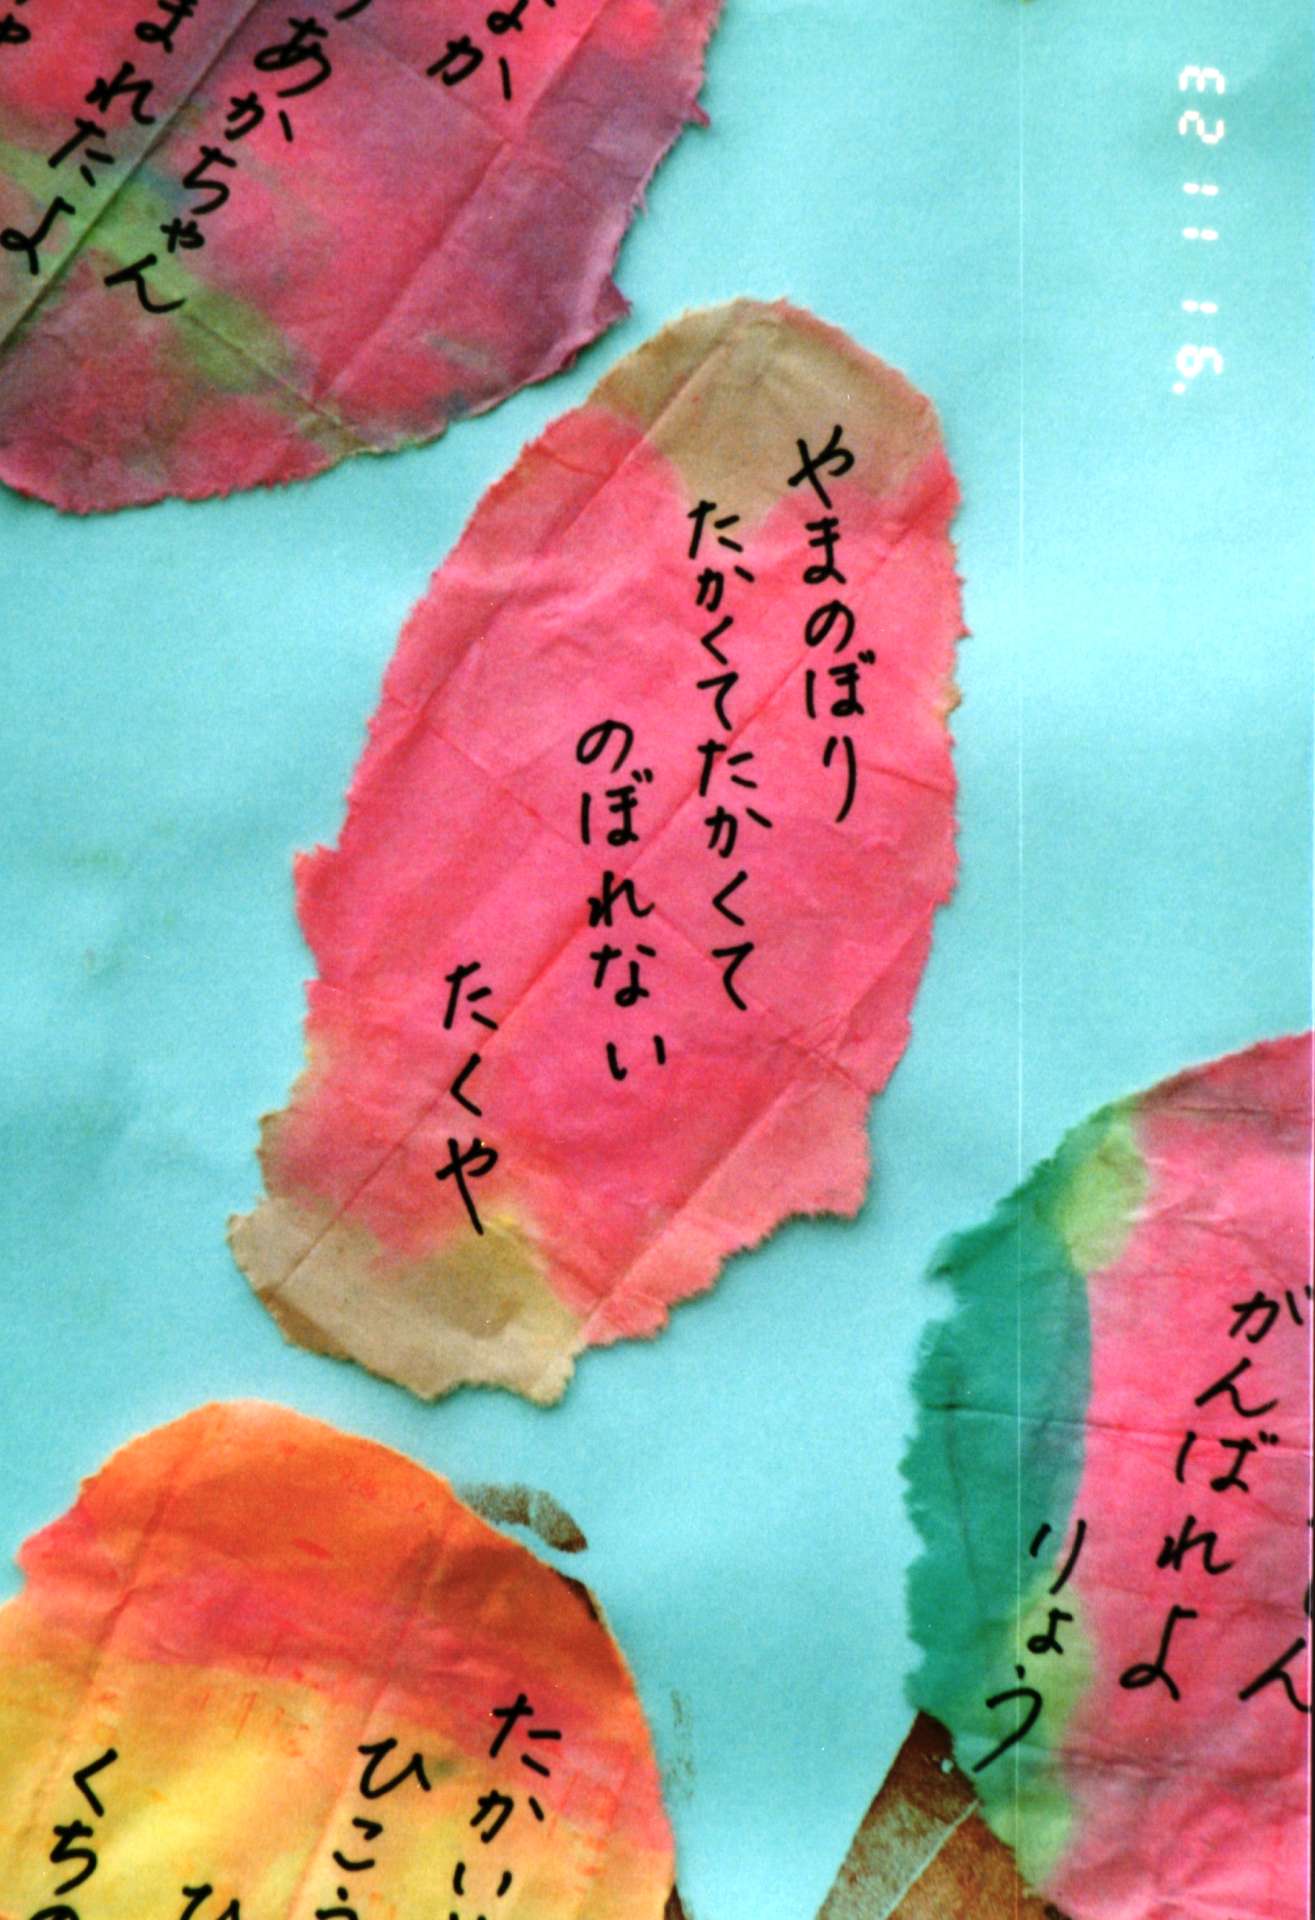 やまのぼり
たかくてたかくて
のぼれない
たくや
なか
あかちゃん
まれたよ
がんばれよ
りょう
たかい
ひこう
くちの
'91 11 23